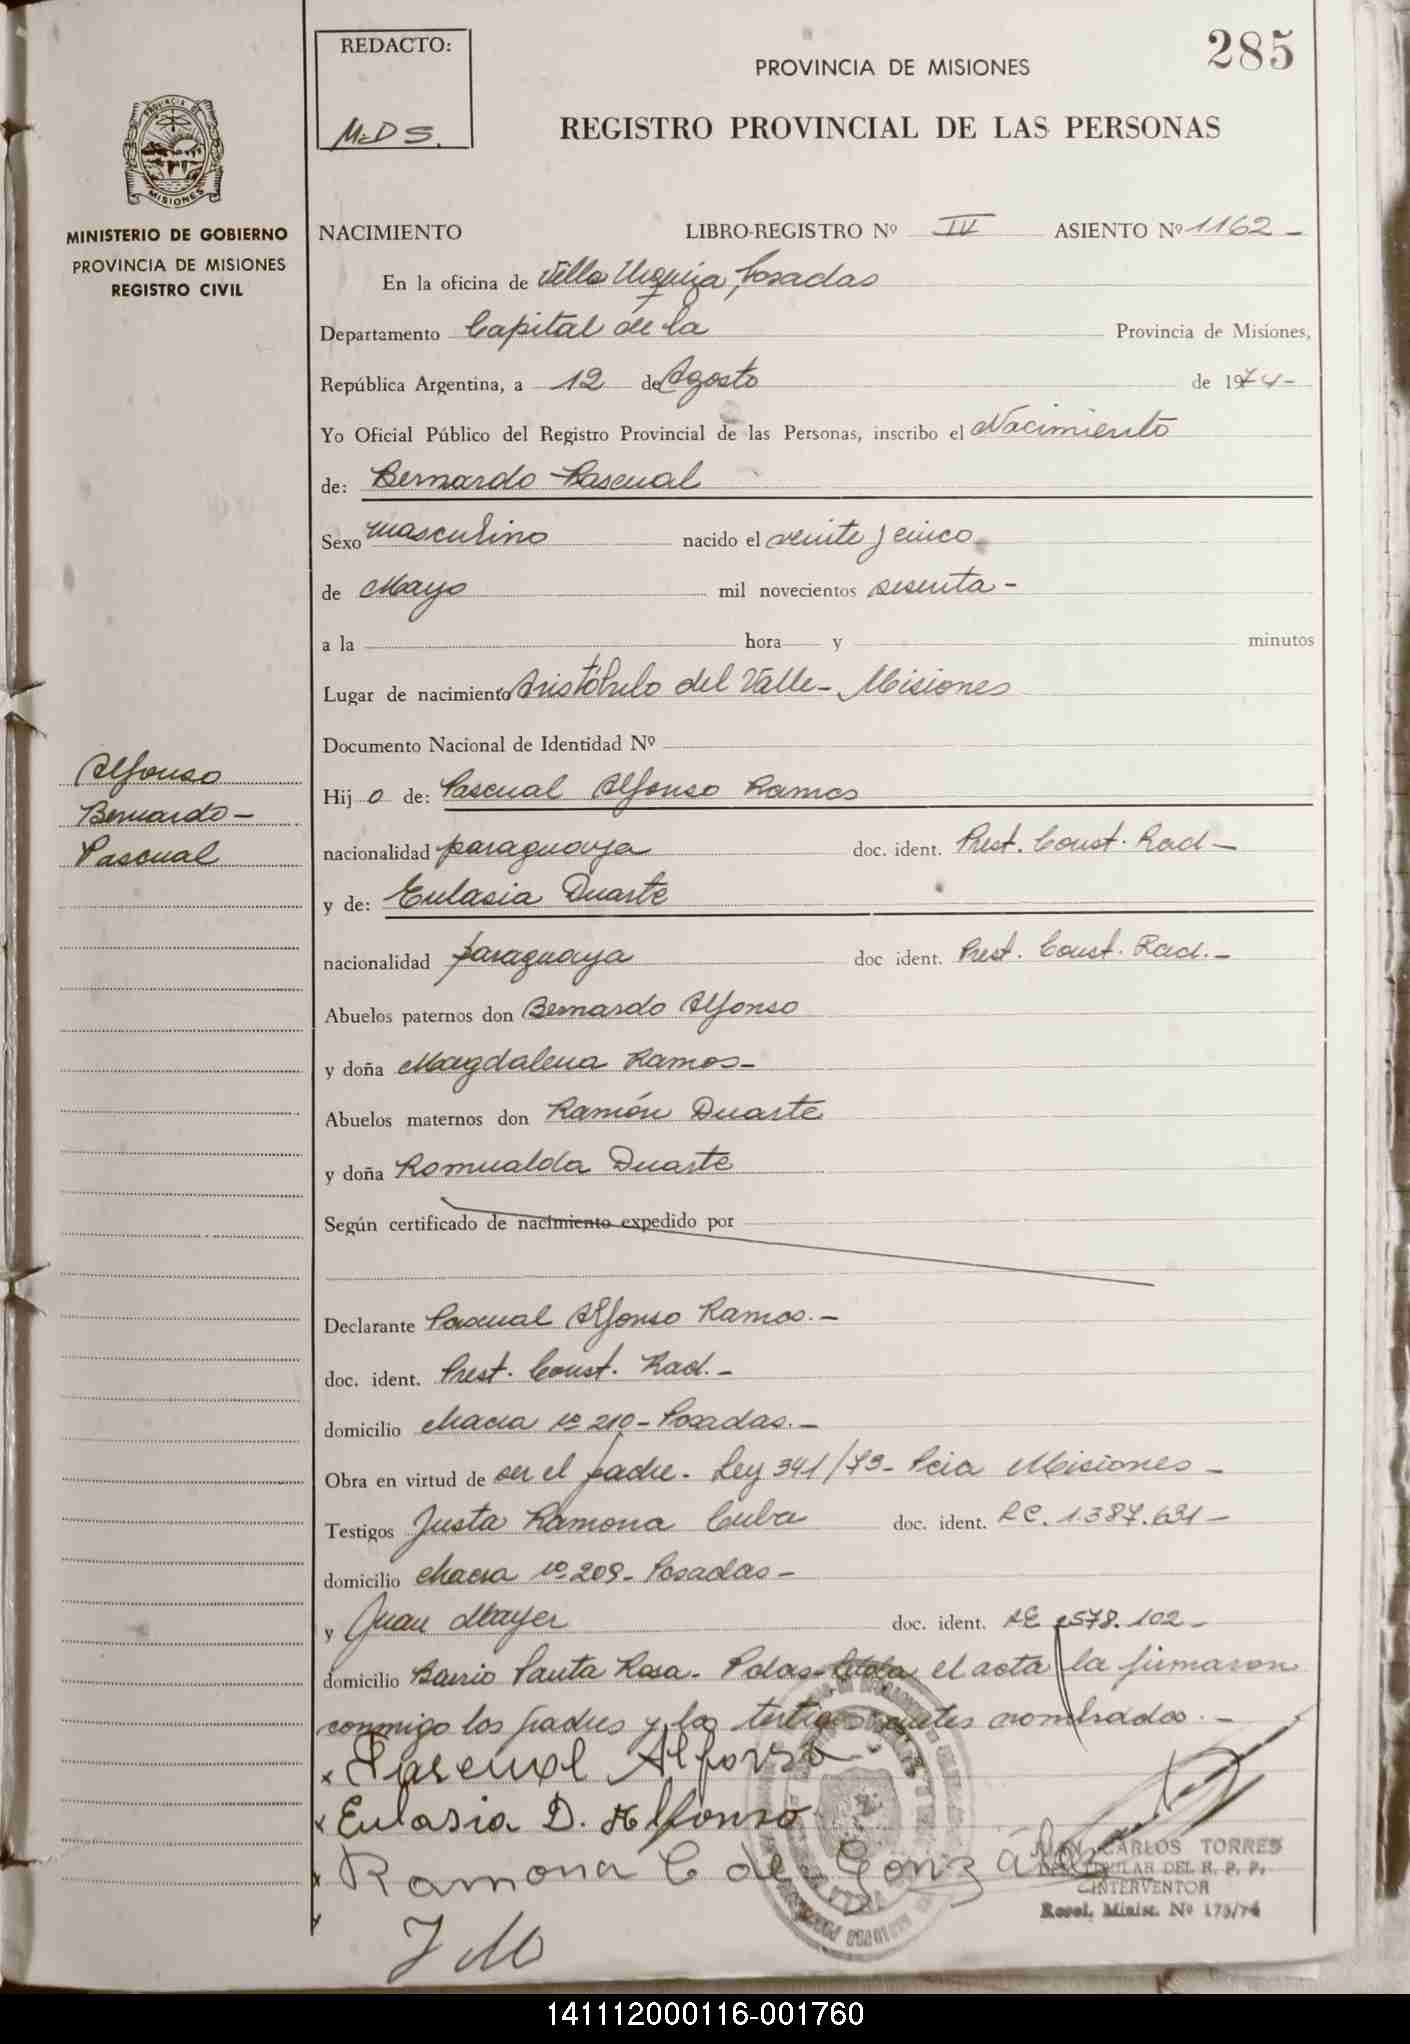 REDACTO:
M.D S.
285
PROVINCIA DE MISIONES
REGISTRO PROVINCIAL DE LAS PERSONAS
PROVINCIA DE
MISIONES
MINISTERIO DE GOBIERNO
PROVINCIA DE MISIONES
REGISTRO CIVIL
NACIMIENTO LIBRO-REGISTRO Nº IV ASIENTO Nº 1162 -
En la oficina de Villa Urquiza, Posadas
Departamento Capital de la Provincia de Misiones,
República Argentina, a 12 de Agosto de 1974-
Yo Oficial Público del Registro Provincial de las Personas, inscribo el Nacimiento
de: Bernardo Pascual
Sexo masculino nacido el veinte y cinco
de Mayo mil novecientos sesenta -
a la hora y minutos
Lugar de nacimiento Aristóbulo del Valle - Misiones
Documento Nacional de Identidad Nº
Alfonso
Bernardo -
Pascual
Hij o de: Pascual Alfonso Ramos
nacionalidad paraguaya doc. ident. Prest. Const. Rad -
y de: Eulasia Duarte
nacionalidad paraguaya doc ident. Prest. Const. Rad. -
Abuelos paternos don Bernardo Alfonso
y doña Magdalena Ramos -
Abuelos maternos don Ramón Duarte
y doña Romualda Duarte
Según certificado de nacimiento expedido por
Declarante Pascual Alfonso Ramos. -
doc. ident. Prest. Const. Rad. -
domicilio chacra nº 210 - Posadas. -
Obra en virtud de ser el padre. Ley 341/73 - Pcia Misiones -
Testigos Justa Ramona Cuba doc. ident. 1.387.631 -
domicilio chacra nº 209 - Posadas -
y Juan Mayer doc. ident. 578.102 -
domicilio Barrio Santa Rosa - Pdas - Leída el acta la firmaron
conmigo los padres y los testigos antes nombrados. -
x Pascual Alfonso
x Eulasia D. Alfonso
x Ramona C de González
J M
JUAN CARLOS TORRES
TITULAR DEL R. P. P.
INTERVENTOR
Resol. Minist. Nº 173/74
141112000116-001760